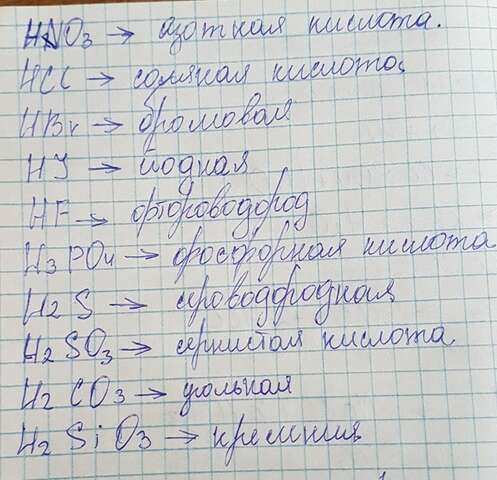 HNO3 → азотная кислота.
HCl → соляная кислота.
HBr → бромовая
HJ → йодная
HF → фтороводород
H3PO4 → фосфорная кислота
H2S → сероводородная
H2SO3 → сернистая кислота
H2CO3 → угольная
H2SiO3 → кремния